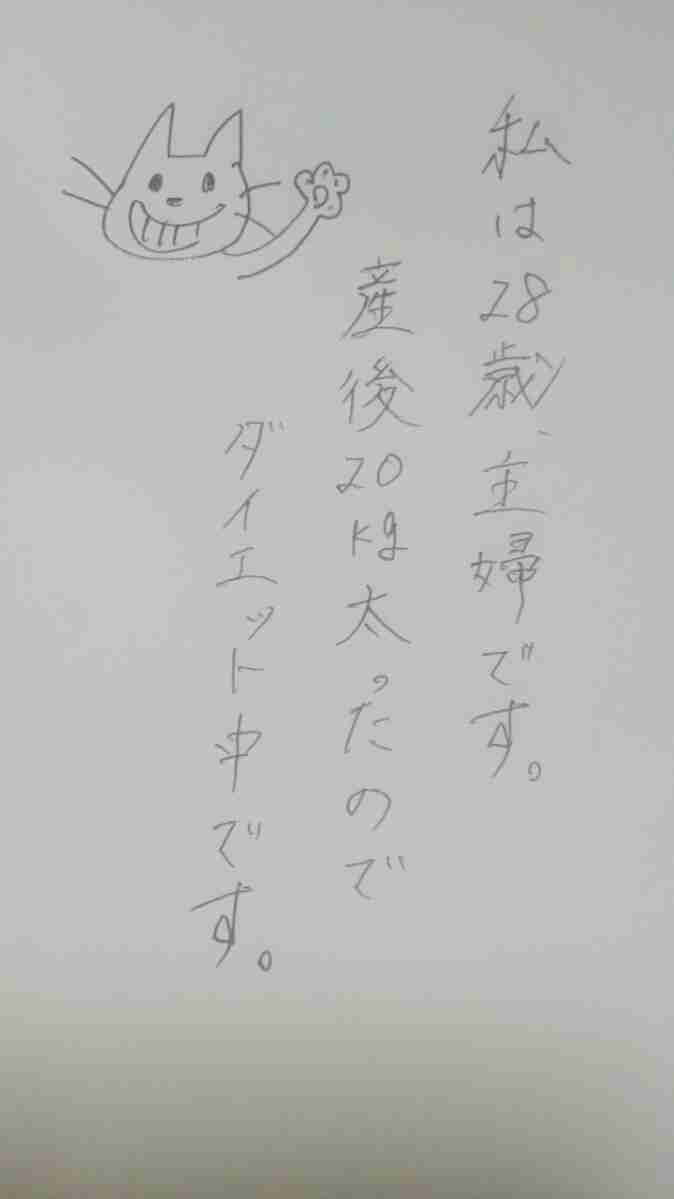 私は28歳、主婦です。
産後20kg太ったので
ダイエット中です。